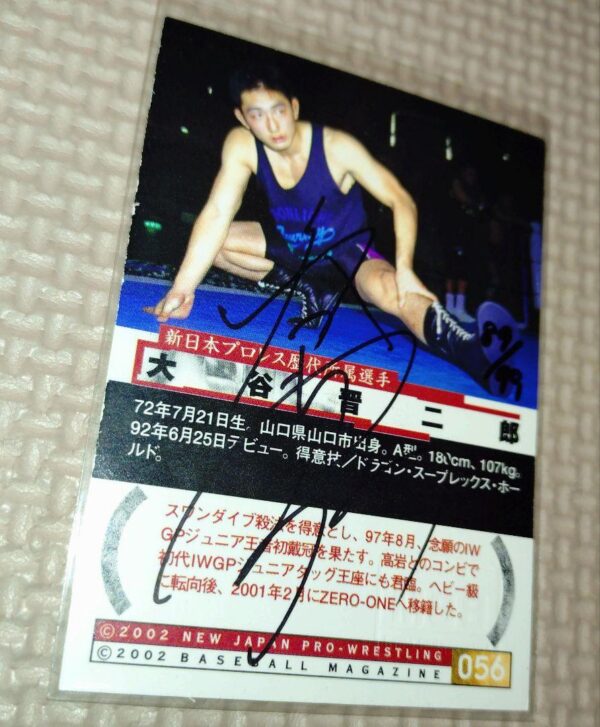 89/99
新日本プロレス歴代所属選手
大谷晋二郎
72年7月21日生。山口県山口市出身。A型。180cm、107kg。
92年6月25日デビュー。得意技/ドラゴン・スープレックス・ホー
ルド。
スワンダイブ殺法を得意とし、97年8月、念願のIW
GPジュニア王者初戴冠を果たす。高岩とのコンビで
初代IWGPジュニアタッグ王座にも君臨。ヘビー級
に転向後、2001年2月にZERO-ONEへ移籍した。
©2002 NEW JAPAN PRO-WRESTLING
©2002 BASEBALL MAGAZINE 056